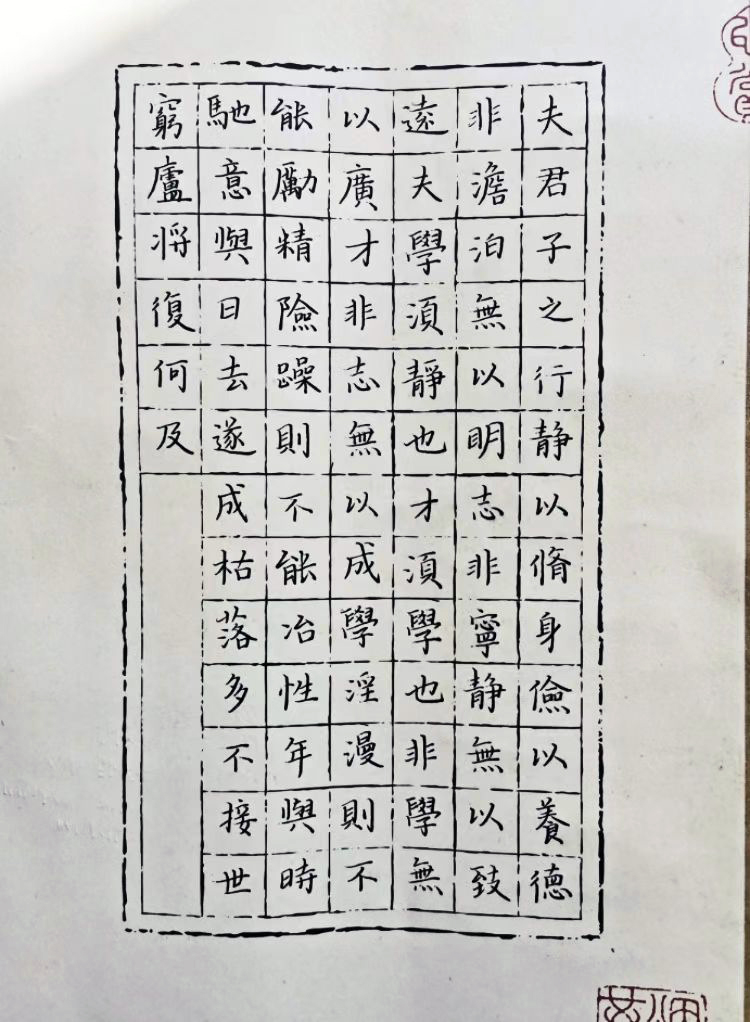 夫君子之行静以脩身儉以養德
非澹泊無以明志非寧静無以致
遠夫學須静也才須學也非學無
以廣才非志無以成學淫漫則不
能勵精險躁則不能冶性年與時
馳意與日去遂成枯落多不接世
窮廬将復何及